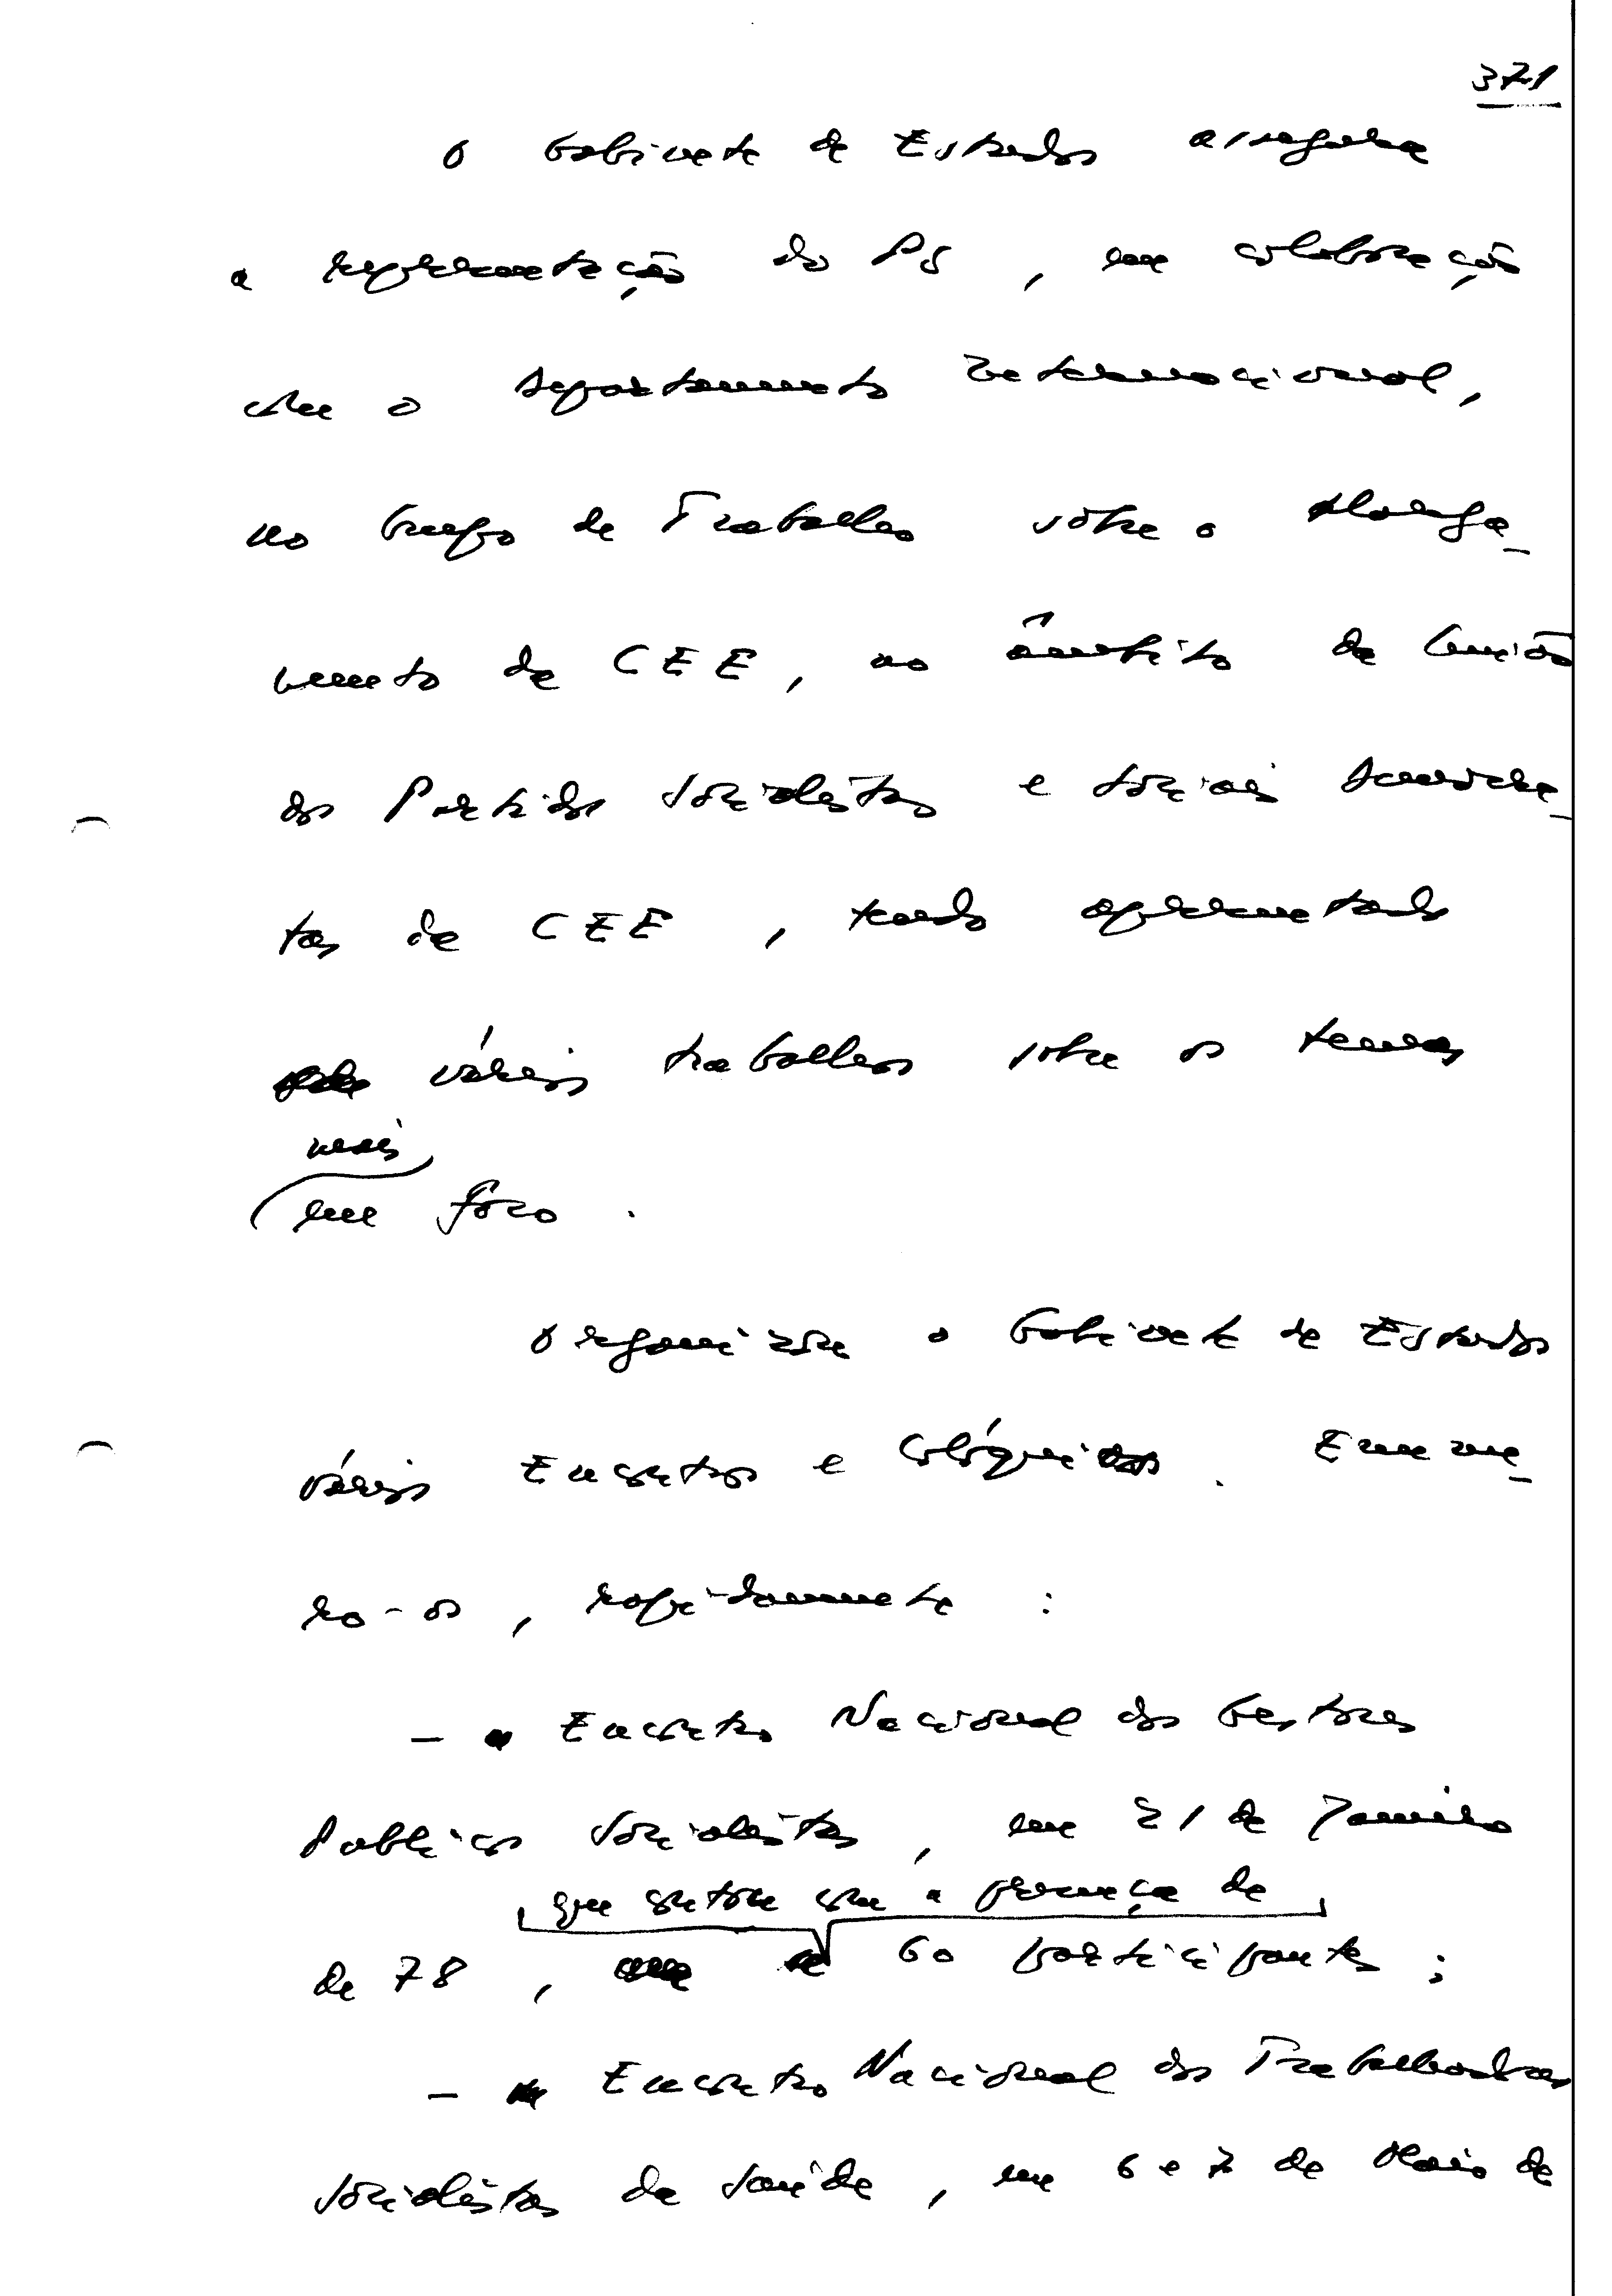 371
O Gabinete de Estudos assegura
a representação do PS, em colaboração
com o Departamento Internacional,
no Grupo de Trabalho sobre o alarga-
mento da CEE, no âmbito da União
dos Partidos Socialistas e Sociais Democra-
tas da CEE, tendo apresentado
vários trabalhos sobre os temas
mais
em foco.
Organizou o Gabinete de Estudos
vários Encontros e Colóquios. Enume-
ro-os, rapidamente:
- Encontro Nacional dos Gestores
Públicos Socialistas, em 21 de Janeiro
que contou com a presença de
de 78, 60 participantes;
- Encontro Nacional dos Trabalhadores
Socialistas da Saúde, em 6 e 7 de Maio de